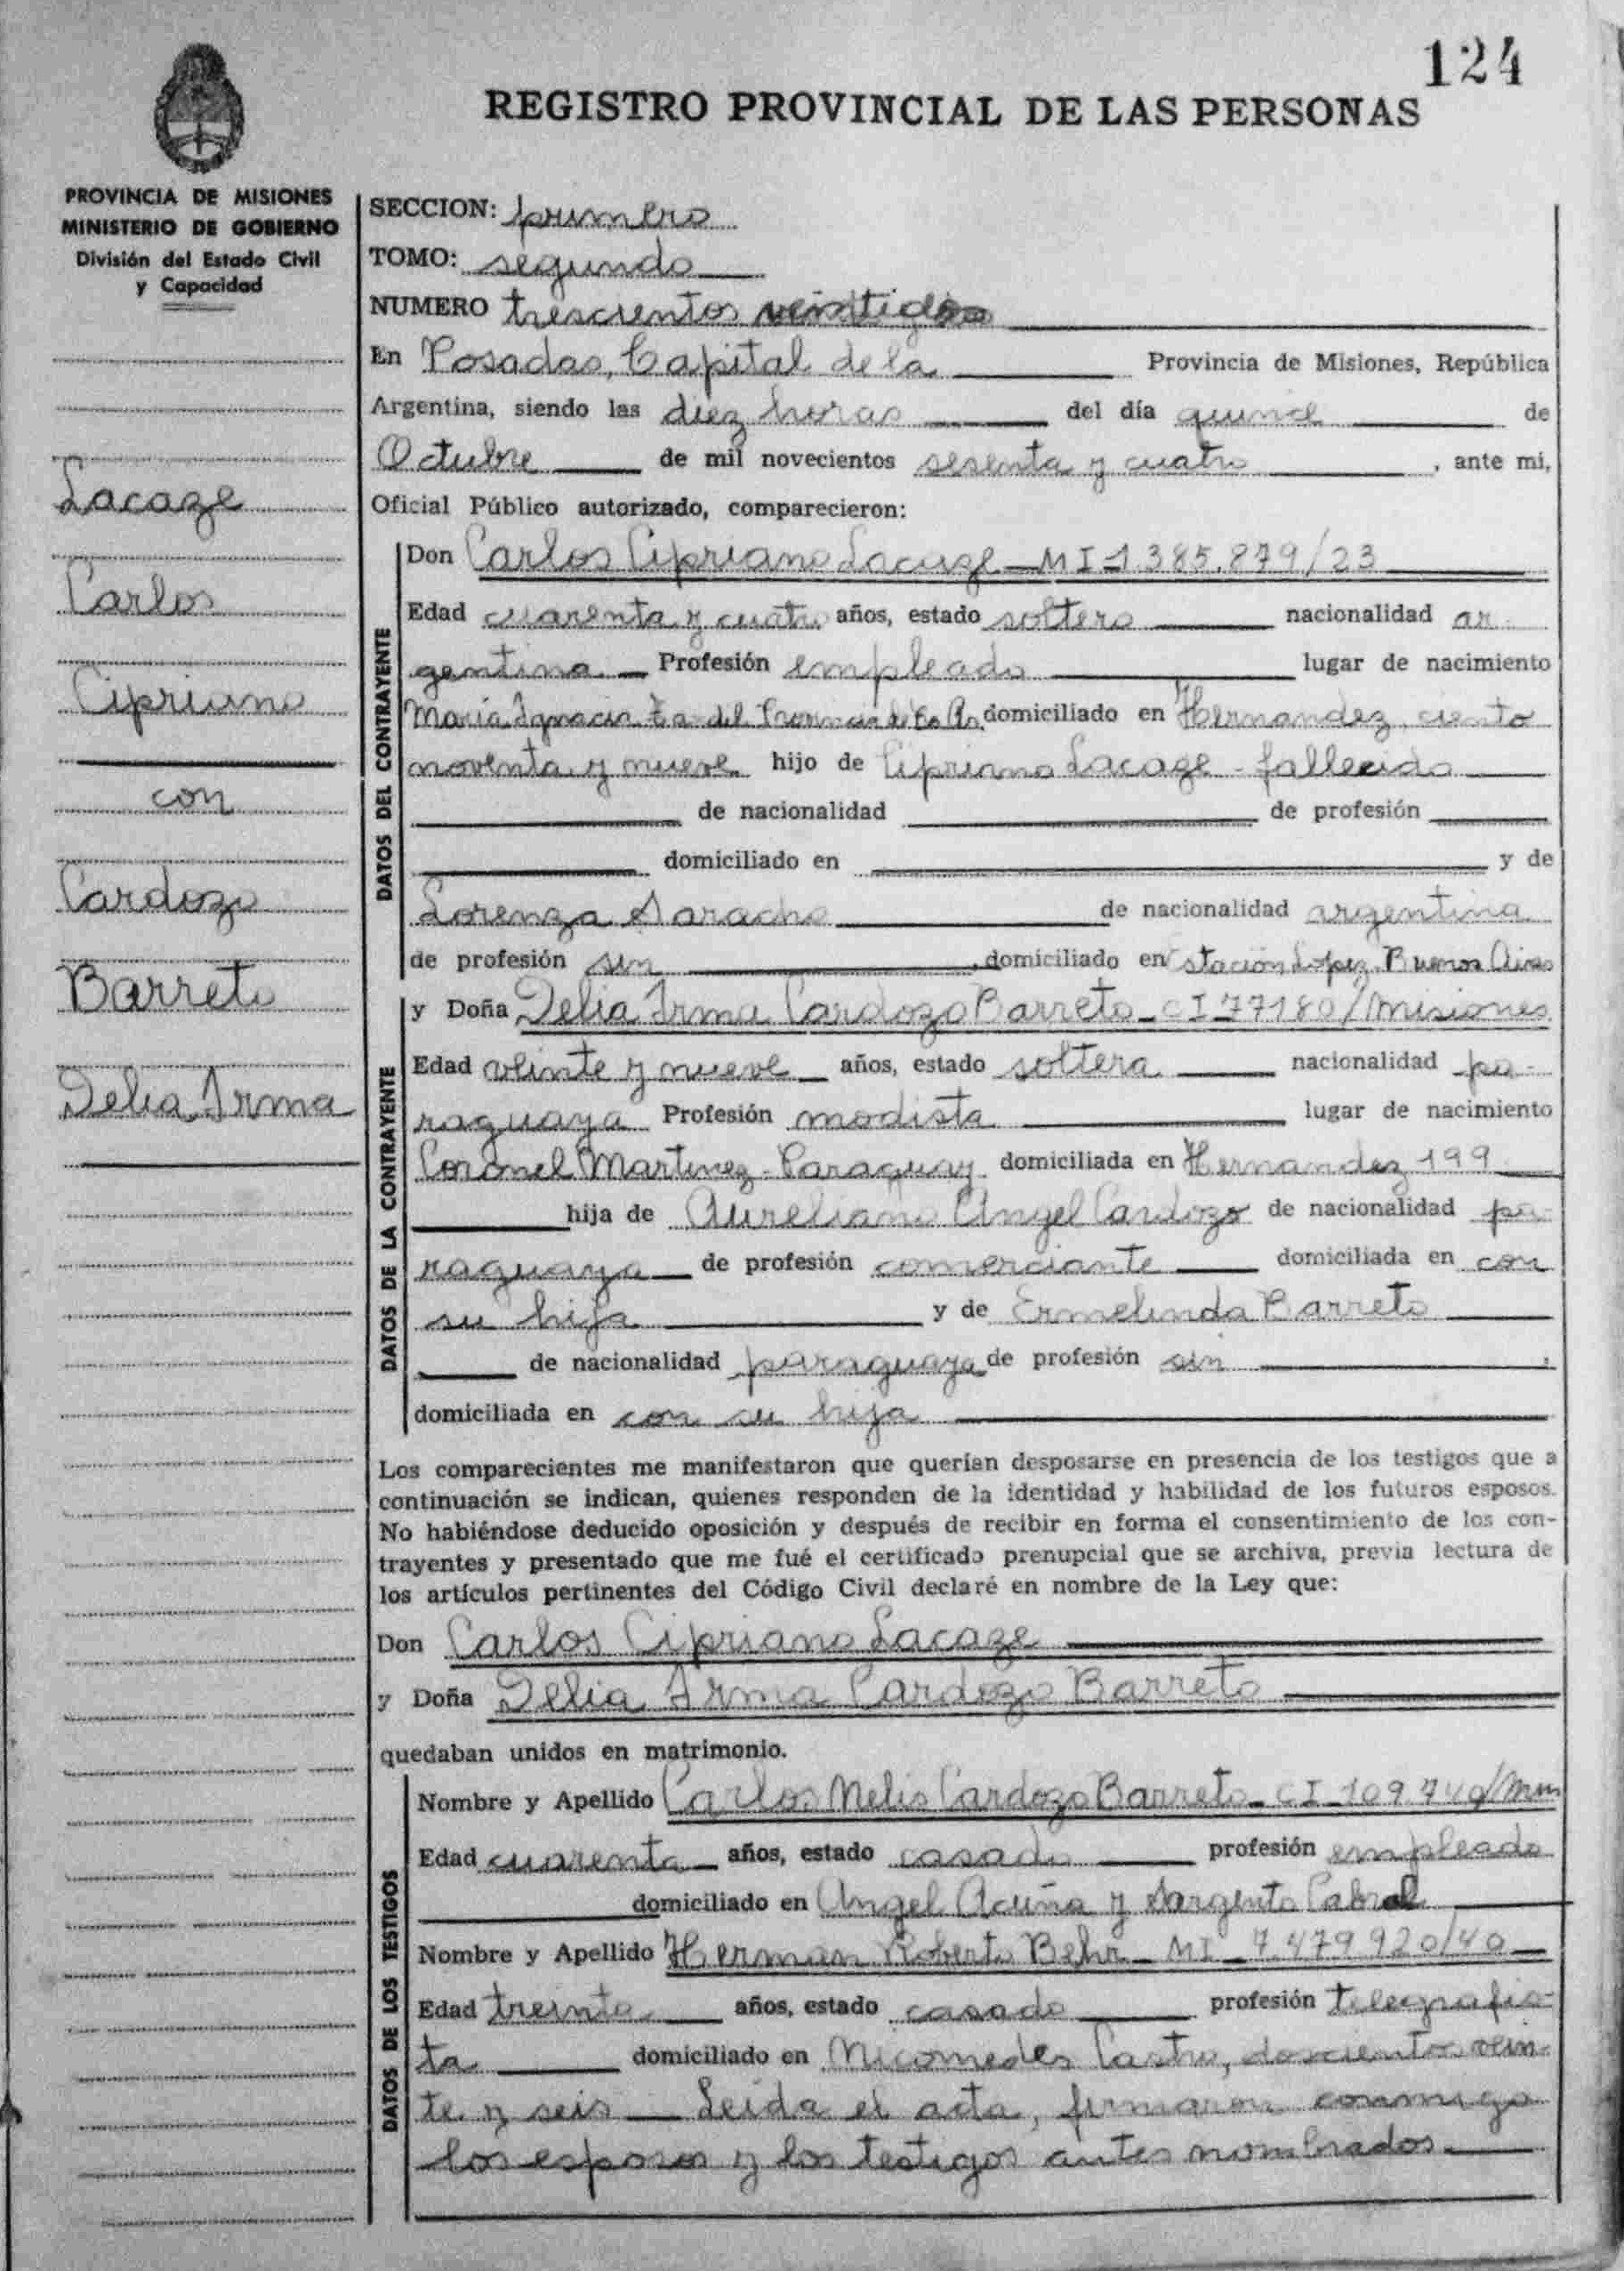 124
REGISTRO PROVINCIAL DE LAS PERSONAS
PROVINCIA DE MISIONES
MINISTERIO DE GOBIERNO
División del Estado Civil
y Capacidad
Lacaze
Carlos
Cipriano
con
Cardozo
Barreto
Delia Irma
SECCION: primero
TOMO: segundo
NUMERO trescientos veintidos
En Posadas, Capital de la Provincia de Misiones, República
Argentina, siendo las diez horas del día quince de
Octubre de mil novecientos sesenta y cuatro, ante mi,
Oficial Público autorizado, comparecieron:
DATOS DEL CONTRAYENTE
Don Carlos Cipriano Lacaze - MI 1.385.879/23
Edad cuarenta y cuatro años, estado soltero nacionalidad ar-
gentina - Profesión empleado lugar de nacimiento
María Ignacia del Provincia de Bs As domiciliado en Hernandez ciento
noventa y nueve hijo de Cipriano Lacaze - fallecido
de nacionalidad de profesión
domiciliado en y de
Lorenza Saracho de nacionalidad argentina
de profesión sin, domiciliado en stación Lopez. Buenos Aires
DATOS DE LA CONTRAYENTE
y Doña Delia Irma Cardozo Barreto - CI 77180/Misiones
Edad veinte y nueve años, estado soltera nacionalidad pa-
raguaya Profesión modista lugar de nacimiento
Coronel Martinez - Paraguay domiciliada en Hernandez 199
hija de Aureliano Angel Cardozo de nacionalidad pa-
raguaya de profesión comerciante domiciliada en con
su hija y de Ermelinda Barreto
de nacionalidad paraguaya de profesión sin,
domiciliada en con su hija
Los comparecientes me manifestaron que querían desposarse en presencia de los testigos que a
continuación se indican, quienes responden de la identidad y habilidad de los futuros esposos.
No habiéndose deducido oposición y después de recibir en forma el consentimiento de los con-
trayentes y presentado que me fué el certificado prenupcial que se archiva, previa lectura de
los artículos pertinentes del Código Civil declaré en nombre de la Ley que:
Don Carlos Cipriano Lacaze
y Doña Delia Irma Cardozo Barreto
quedaban unidos en matrimonio.
DATOS DE LOS TESTIGOS
Nombre y Apellido Carlos Nelis Cardozo Barreto - CI - 109.749/Mns
Edad cuarenta años, estado casado profesión empleado
domiciliado en Angel Acuña y Sargento Cabral
Nombre y Apellido Herman Roberto Behr - MI - 7.479.920/40
Edad treinta años, estado casado profesión telegrafis-
ta domiciliado en Nicomedes Castro, doscientos vein-
te y seis - Leida el acta, firmaron conmigo
los esposos y los testigos antes nombrados.